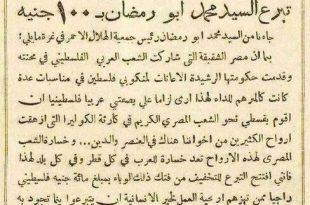 تبرع السيد محمد ابو رمضان بـ ١٠٠ جنيه
جاءنا من السيد محمد ابو رمضان رئيس جمعية الهلال الاحمر في غزة مايلي :
بما ان مصر الشقيقة التي شاركت الشعب العربي الفلسطيني في محنته
وقدمت حكومتها الرشيدة الاعانات لمنكوبي فلسطين في مناسبات عدة
كانت كالمرهم للداء لهذا ارى لزاما علي بصفتي عربيا فلسطينيا ان
اقوم بقسطي نحو الشعب المصري الكريم في كارثة الكوليرا التي ازهقت
ارواح الكثيرين من اخواننا هناك في العنصر والدين... وخسارة الشعب
المصري لهذه الارواح تعد خسارة للعرب في كل قطر وفي كل بلد لهذا
فاني افتتح التبرع للتخفيف من فتك ذلك الوباء بمبلغ مائة جنيه فلسطيني
راجيا ممن تهزهم اريحية العمل لخير الانسانية ان يتبرعوا بما تجود به